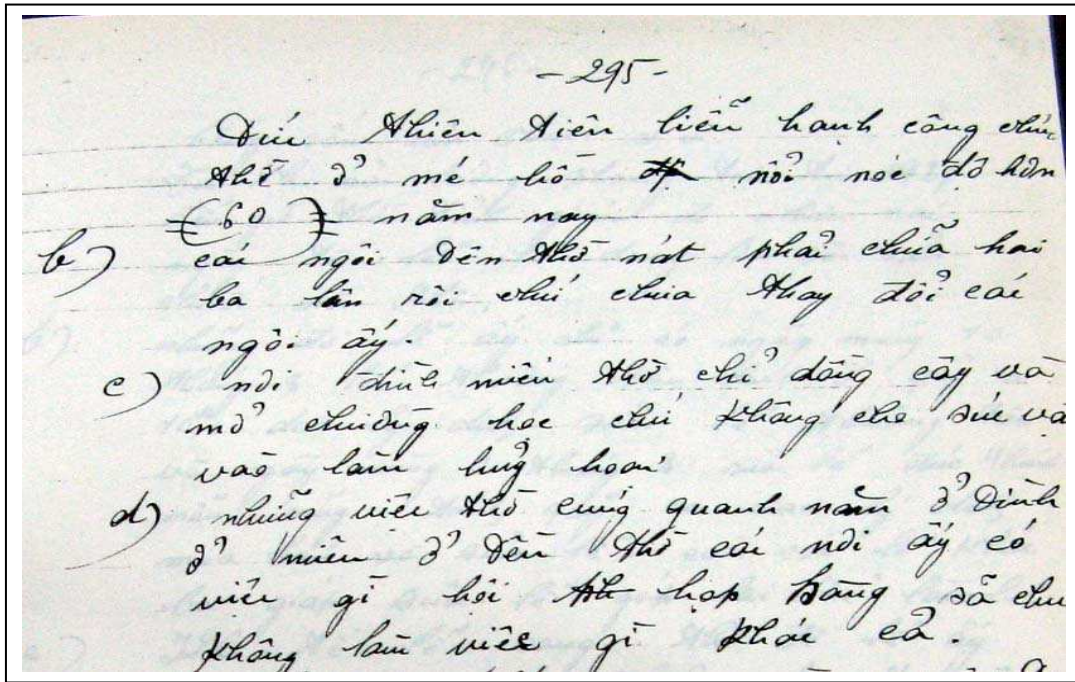 - 295 -
Đức Thiên tiên liễu hạnh công chúa
thờ ở mé hồ nổi nóc độ hơn
(60) năm nay
b) cái ngôi Đền thờ nát phải chữa hai
ba lần rồi chứ chưa thay đổi cái
ngôi ấy.
c) nơi đình miếu thờ chỉ dồng cây và
mở chường học chứ không cho súc vậ
vào làm huỷ hoại
d) những việc thờ cúng quanh năm ở Đình
ở miếu ở Đền thờ cái nơi ấy có
việc gì hội họp hàng sã chứ
không làm việc gì khác cả.